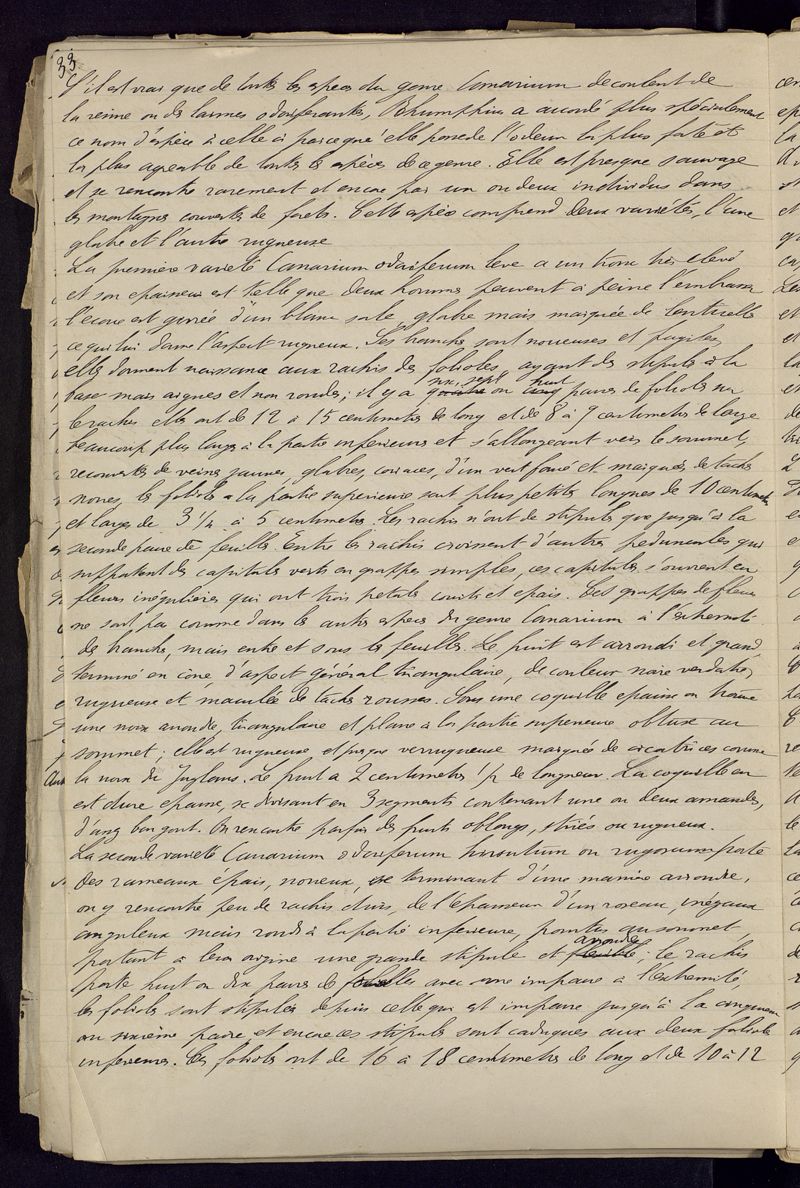 33
S'il est vrai que de toutes les espèces du genre Canarium decoulent de
la résine ou des larmes odoriferantes, Rhumphius a accordé plus specialement
ce nom d'espèce à celle ci parceque elle possede l'odeur la plus forte et
la plus agreable de toutes les espèces de ce genre. Elle est presque sauvage
et se rencontre rarement et encore par un ou deux individus dans
les montagnes couvertes de forets. Cette espèce comprend deux variétés, l'une
glabre et l'autre rugueuse
La première varieté Canarium odoriferum leve a un tronc très elevé
et son epaisseur est telle que deux hommes peuvent à peine l'embrasser
l'ecorce est d'un blanc sale, glabre mais marquée de lenticelles
ce qui lui donne l'aspect rugueux. Ses branches sont noueuses et fragiles,
elles donnent naissance aux rachis des folioles, ayant des stipules à la
six, sept huit
base mais aigues et non rondes; il y a ou paires de folioles sur
le rachis elles ont de 12 à 15 centimetres de long et de 8 à 9 centimetres de large
beaucoup plus larges à la partie inferieure et s'allongeant vers le sommet,
recouvertes de veines jaunes, glabres, coriaces, d'un vert foncé et marquées de taches
noires, les folioles a la partie superieure sont plus petites longues de 10 centimetres
et larges de 3 1/2 à 5 centimetres. Les rachis n'ont de stipules que jusqu'à la
seconde paire de feuilles. Entre les rachis croissent d'autres peduncules qui
supportent des capitules verts en grappes simples, ces capitules s'ouvrent en
fleurs irrégulières qui ont trois petales courts et epais. Ces grappes de fleurs
ne sont pas comme dans les autres especes du genre Canarium à l'extremité
des branches, mais entre et sous les feuilles. Le fruit est arrondi et grand,
terminé en cône, d'aspect général triangulaire, de couleur noire verdatre,
rugueuse et maculée de taches rousses. Sous une coquille epaisse on trouve
une noix arrondie, triangulaire et plane à la partie superieure obtuse au
sommet; elle est rugueuse et presque verruqueuse marquée de cicatrices comme
la noix de Juglans. Le fruit a 2 centimetres 1/2 de longueur. La coquille en
est dure epaisse, se divisant en 3 segments contenant une ou deux amandes,
d'assez bon gout. On rencontre parfois des fruits oblongs, striés ou rugueux.
La seconde varieté Canarium odoriferum hirsutum ou rugosum porte
des rameaux épais, noueux, se terminant d'une manière arrondie,
on y rencontre peu de rachis durs, de l'epaisseur d'un roseau, inégaux
anguleux mais ronds à la partie inferieure, pointus au sommet,
arrondie
portant à leur origine une grande stipule et le rachis
porte huit ou dix paires de folioles avec une impaire à l'extremité,
les folioles sont stipulées depuis celle qui est impaire jusqu'à la cinquieme
ou sixième paire, et encore ces stipules sont caduques aux deux folioles
inferieures. Les folioles ont de 16 à 18 centimetres de long et de 10 à 12